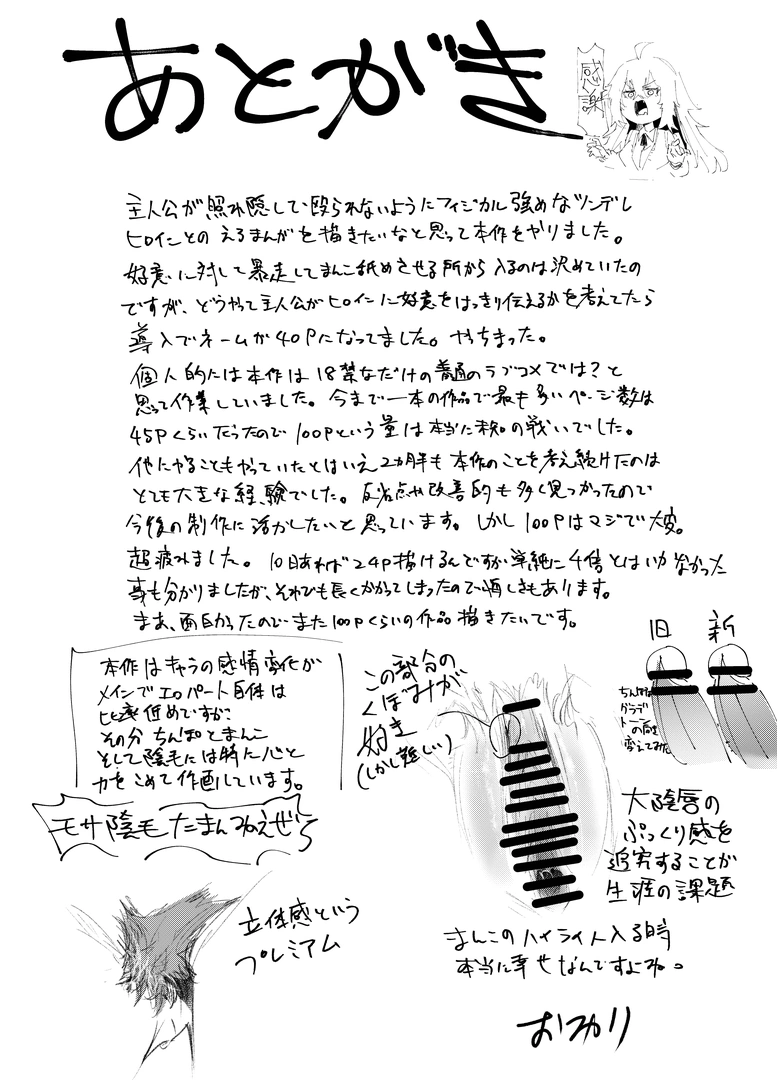 あとがき
感謝
主人公が照れ隠しで殴られないようにフィジカル強めなツンデレ
ヒロインとの えろまんがを描きたいなと思って本作をやりました。
好意に対して暴走してまんこ舐めさせる所から入るのは決めていたの
ですが、どうやって主人公がヒロインに好意をはっきり伝えるかを考えてたら
導入でネームが40Pになってました。やっちまった。
個人的には本作は18禁なだけの普通のラブコメでは?と
思って作業していました。今まで一本の作品で最も多いページ数は
45Pくらいだったので100Pという量は本当に未知の戦いでした。
他にやることもやっていたとはいえ2ヵ月半も本作のことを考え続けたのは
とても大きな経験でした。反省点や改善的も多く見つかったので
今後の制作に活かしたいと思っています。しかし100Pはマジで大変。
超疲れました。10日あれば24P描けるんですが単純に4倍とはいかなかった
事も分かりましたが、それでも長くかかってしまったので悔しさもあります。
まあ、面白かったのでまた100Pくらいの作品描きたいです。
本作はキャラの感情変化が
メインでエロパート自体は
比率低めですが
その分 ちんぽとまんこ
そして陰毛には特に心と
力をこめて作画しています。
モサ陰毛 たまんねえぜ
立体感という
プレミアム
この部分の
くぼみが
好き
(しかし難しい)
旧 新
ちんぽは
グラデ
トーン
の向き
変えてみた
大陰唇の
ぷっくり感を
追究することが
生涯の課題
まんこのハイライト入る時
本当に幸せなんですよね。
おわり